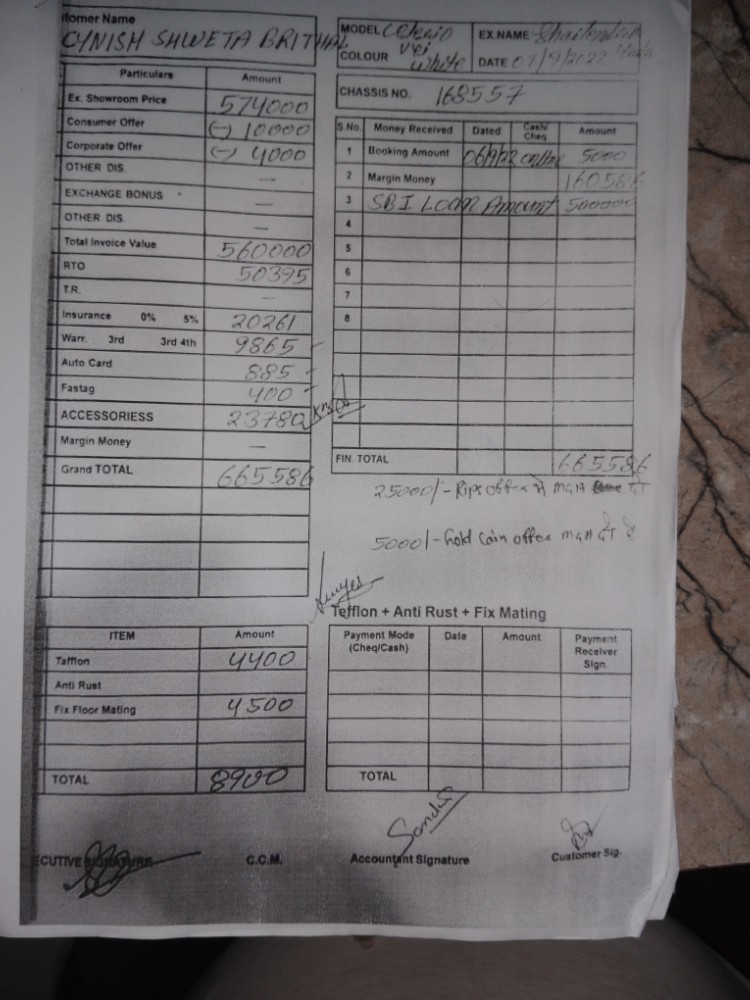 tomer Name
CYNISH SHWETA BRITHAL
MODEL Celerio
Vxi
COLOUR White
EX.NAME
DATE 07/9/2022
CHASSIS NO. 168557
Particulars Amount
Ex. Showroom Price 574000
Consumer Offer (-) 10000
Corporate Offer (-) 4000
OTHER DIS. —
EXCHANGE BONUS —
OTHER DIS —
Total Invoice Value 560000
RTO 50395
T.R. —
Insurance 0% 5% 20261
Warr. 3rd 3rd 4th 9865
Auto Card 885
Fastag 400
ACCESSORIESS 23780
Margin Money —
Grand TOTAL 665586
S.No. Money Received Dated Cash/ Cheq Amount
1 Booking Amount 06/9/22 online 5000
2 Margin Money 160586
3 SBI Loan Amount 500000
4
5
6
7
8
FIN. TOTAL 665586
25000/- offer में MGA
5000/- Gold Coin offer MGA
Tefflon + Anti Rust + Fix Mating
ITEM Amount
Tafflon 4400
Anti Rust
Fix Floor Mating 4500
TOTAL 8900
Payment Mode (Cheq/Cash) Date Amount Payment Receiver Sign.
TOTAL
ECUTIVE SIGNATURE C.C.M. Accountant Signature Customer Sig.